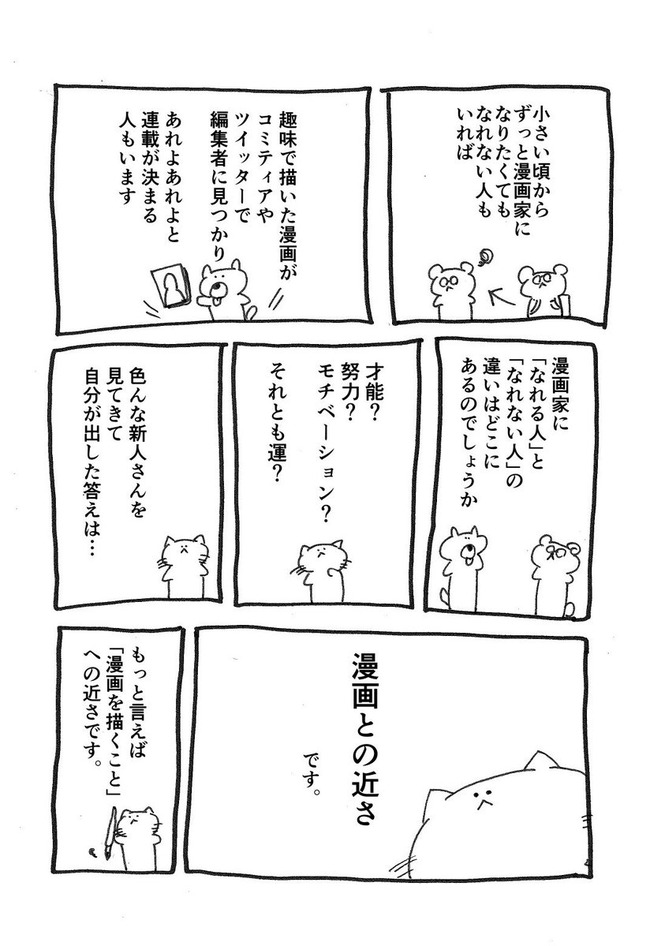 小さい頃から
ずっと漫画家に
なりたくても
なれない人も
いれば
趣味で描いた漫画が
コミティアや
ツイッターで
編集者に見つかり
あれよあれよと
連載が決まる
人もいます
漫画家に
「なれる人」と
「なれない人」の
違いはどこに
あるのでしょうか
才能?
努力?
モチベーション?
それとも運?
色んな新人さんを
見てきて
自分が出した答えは…
漫画との近さ
です。
もっと言えば
「漫画を描くこと」
への近さです。